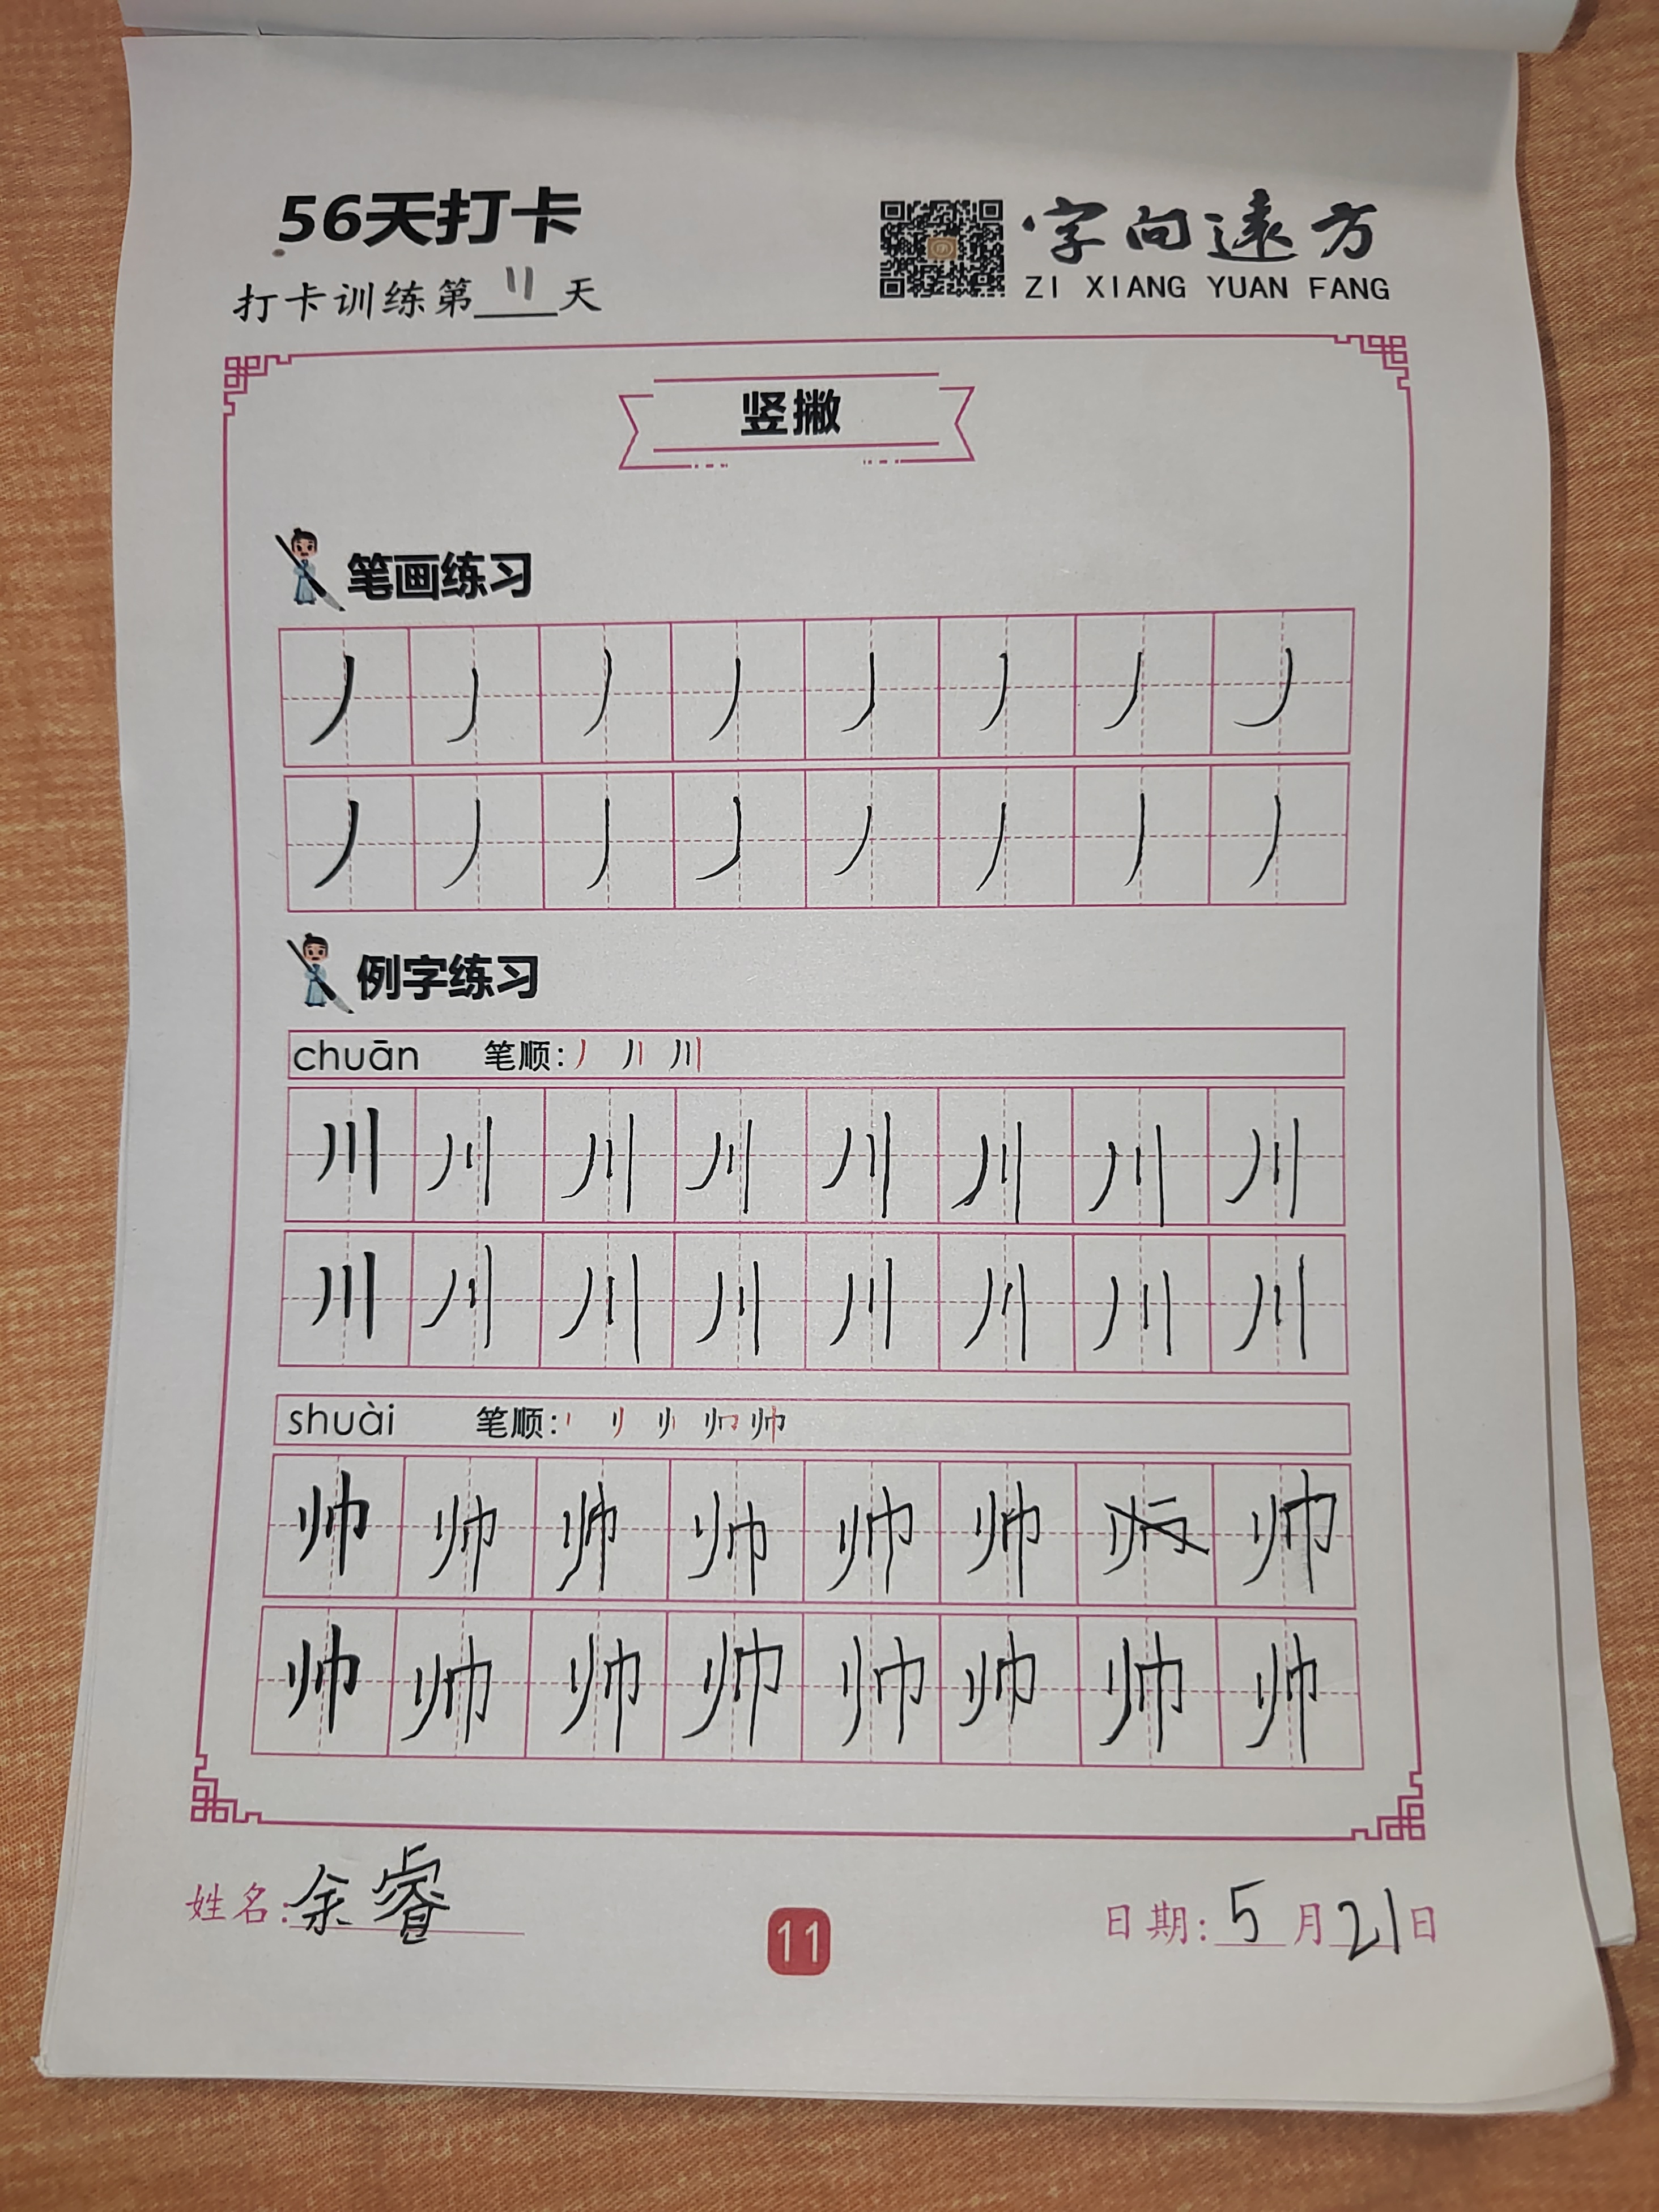 56天打卡
字向遠方
ZI XIANG YUAN FANG
打卡训练第11天
竖撇
笔画练习
丿丿丿丿丿丿丿丿
丿丿丿丿丿丿丿丿
例字练习
chuān 笔顺: 丿 川
川川川川川川川川
川川川川川川川川
shuài 笔顺: 帅
帅帅帅帅帅帅帅
帅帅帅帅帅帅帅帅
姓名:余睿
11
日期:5月21日